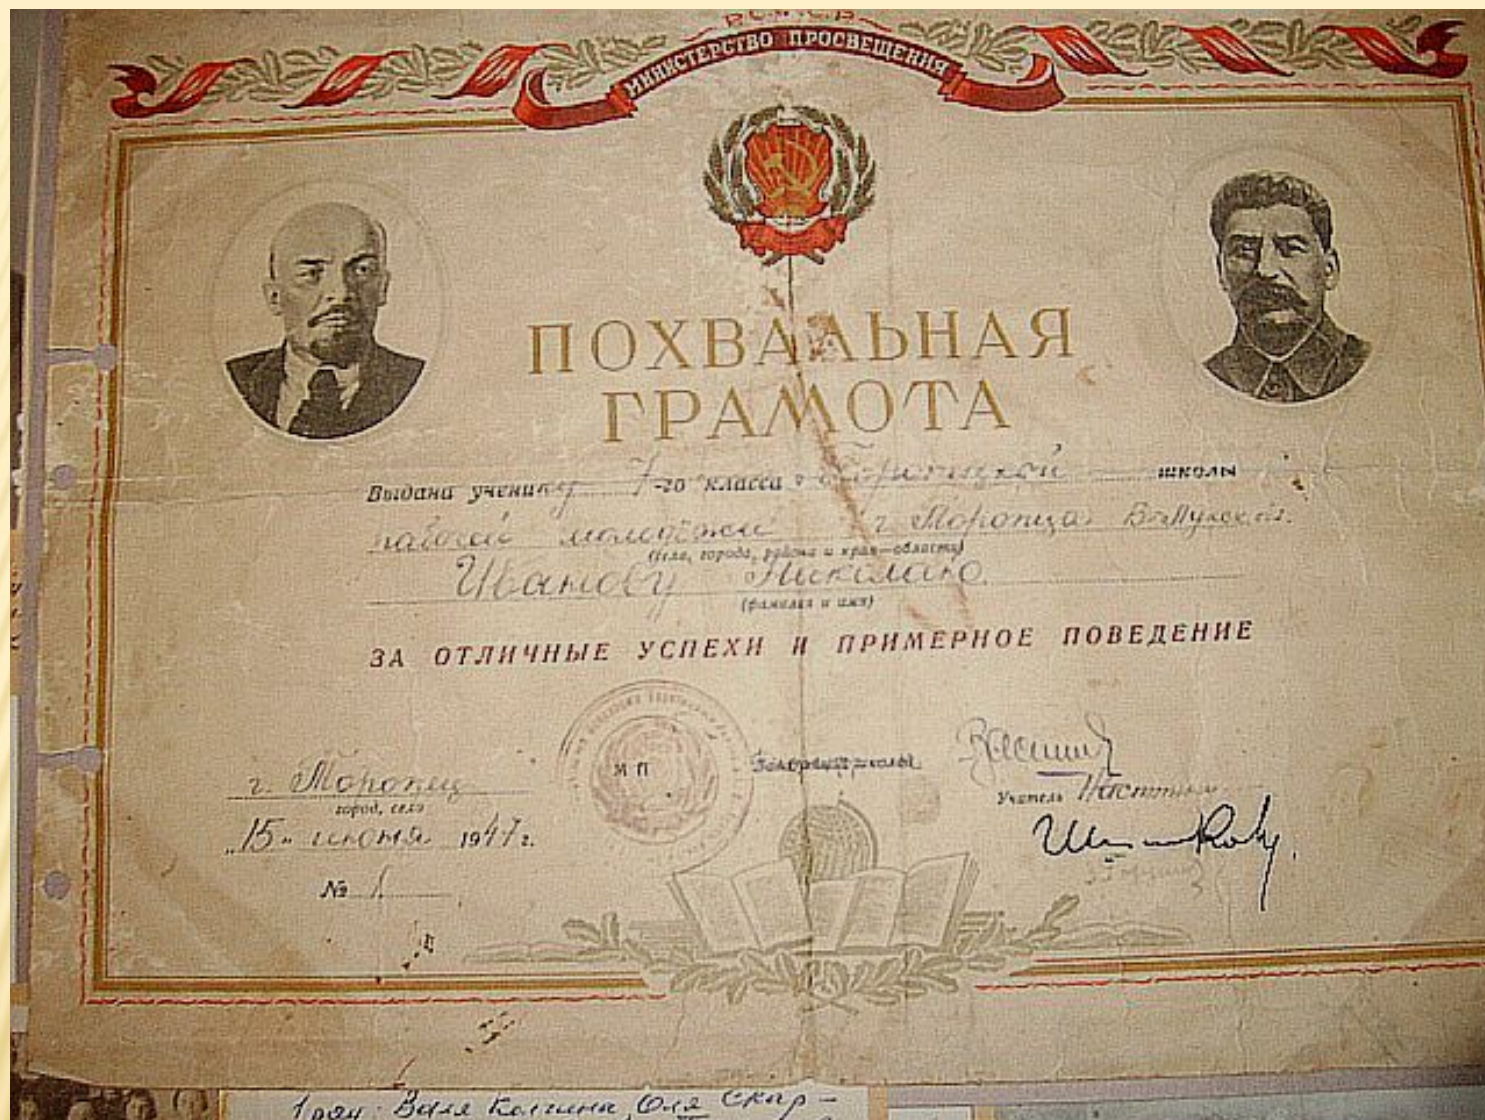 Р.С.Ф.С.Р.
МИНИСТЕРСТВО ПРОСВЕЩЕНИЯ
ПОХВАЛЬНАЯ
ГРАМОТА
Выдана ученику 7-го класса школы
рабочей молодёжи г. Торопца В-Лукской
(села, города, района и края—области)
Иванову Николаю
(фамилия и имя)
ЗА ОТЛИЧНЫЕ УСПЕХИ И ПРИМЕРНОЕ ПОВЕДЕНИЕ
М П
г. Торопец
город, село
Учитель
„15" июня 1947 г.
№ 1
1 ряд: Валя Оля Скар-